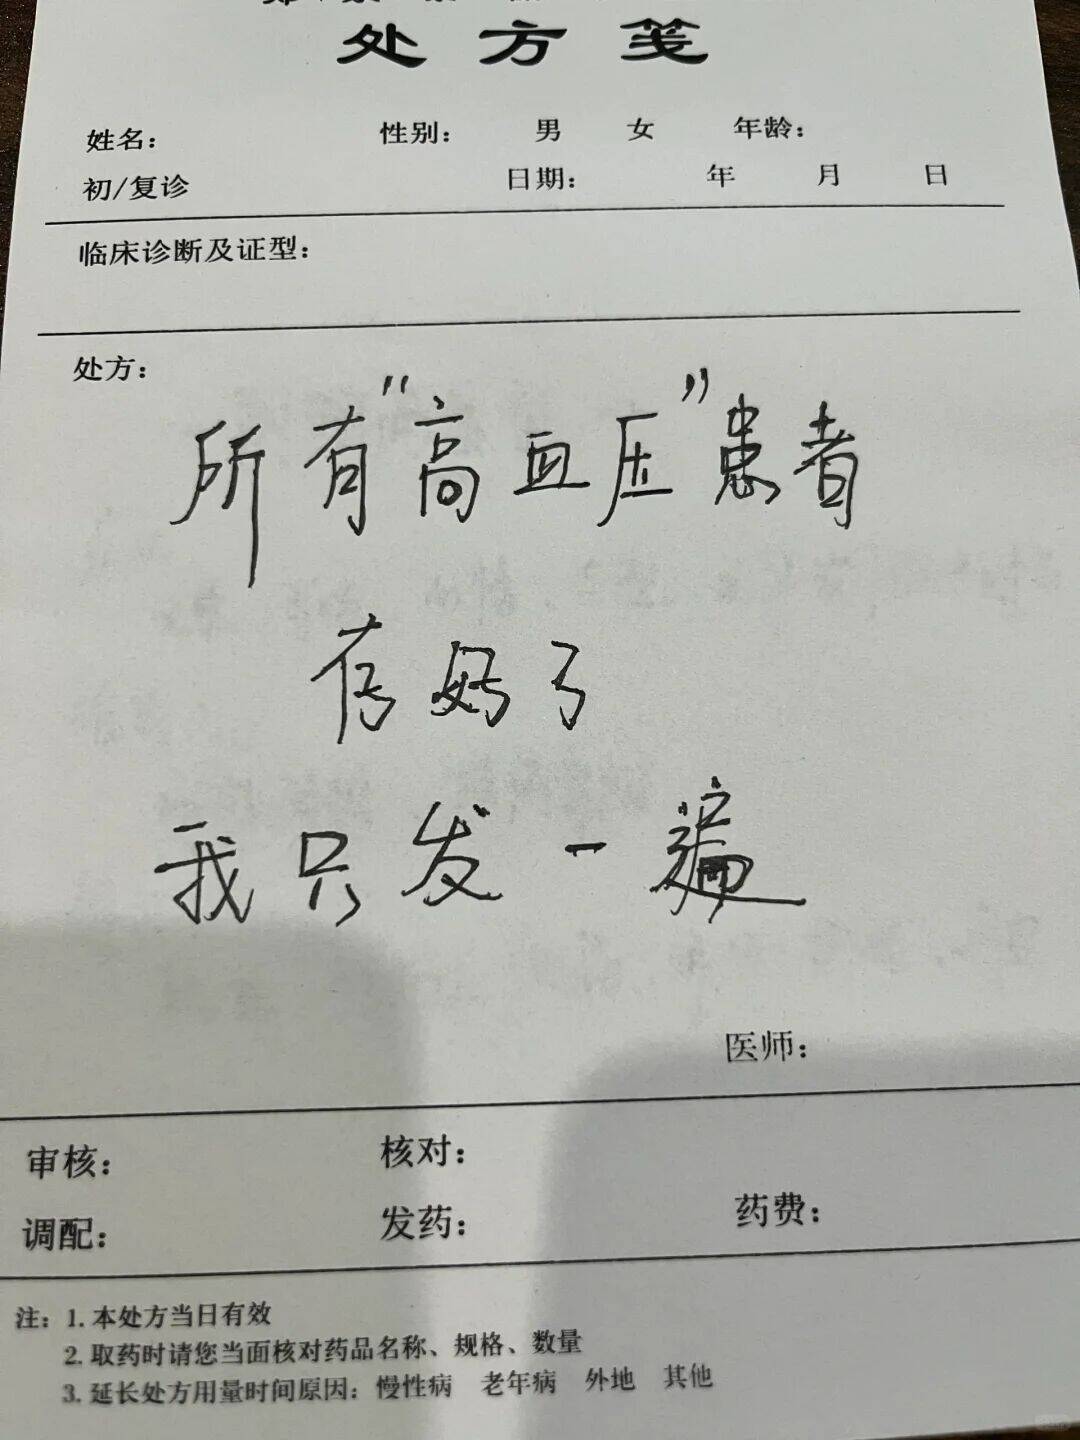 处方笺
姓名： 性别： 男 女 年龄：
初/复诊 日期： 年 月 日
临床诊断及证型：
处方：
所有“高血压”患者
存好了
我只发一遍
医师：
审核： 核对：
调配： 发药： 药费：
注：1. 本处方当日有效
2. 取药时请您当面核对药品名称、规格、数量
3. 延长处方用量时间原因：慢性病 老年病 外地 其他